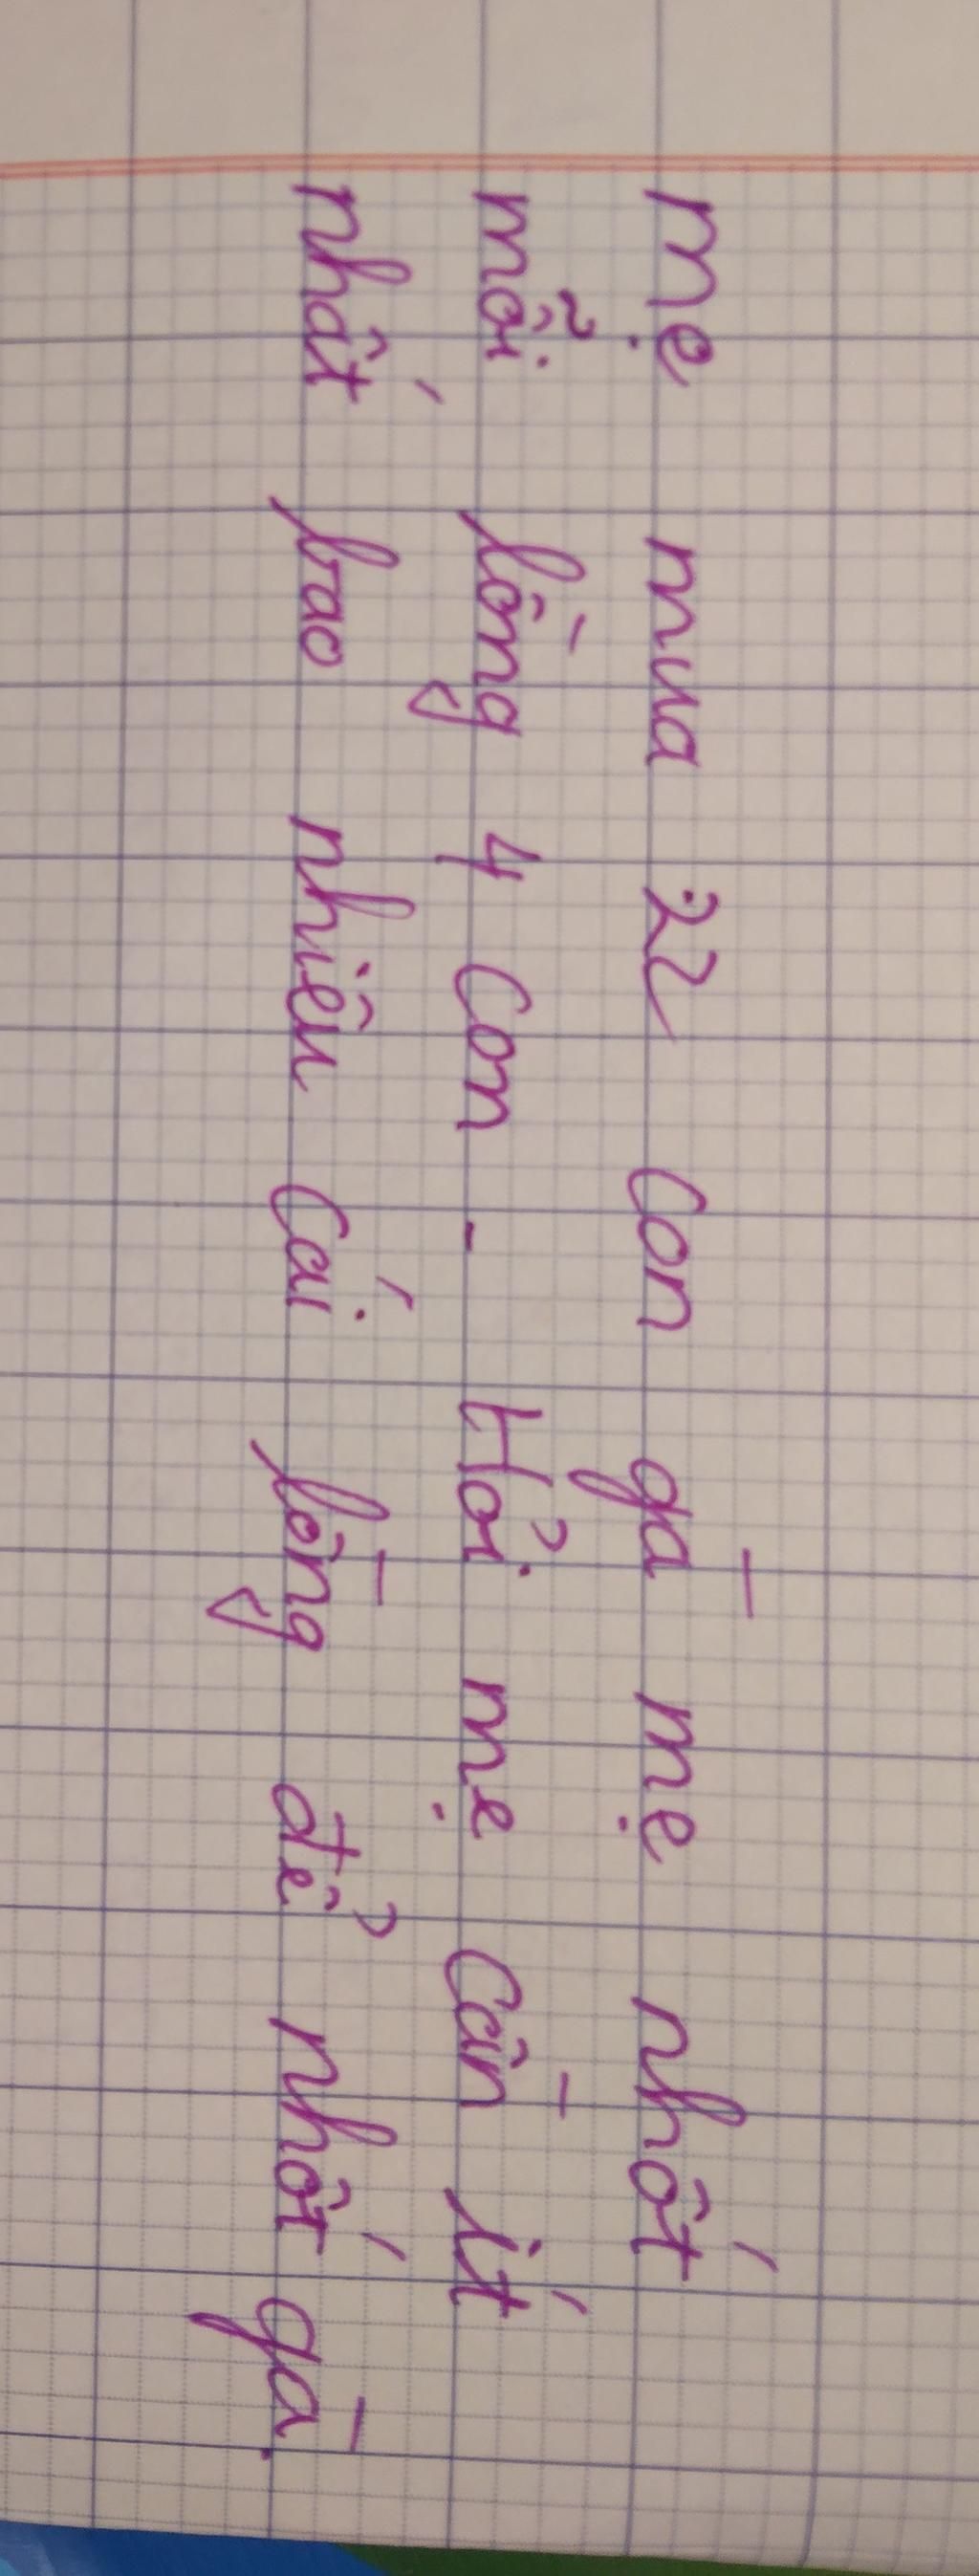 mẹ mua 22 con gà mẹ nhốt
mỗi lồng 4 con - Hỏi mẹ cần ít
nhất bao nhiêu cái lồng để nhốt gà.